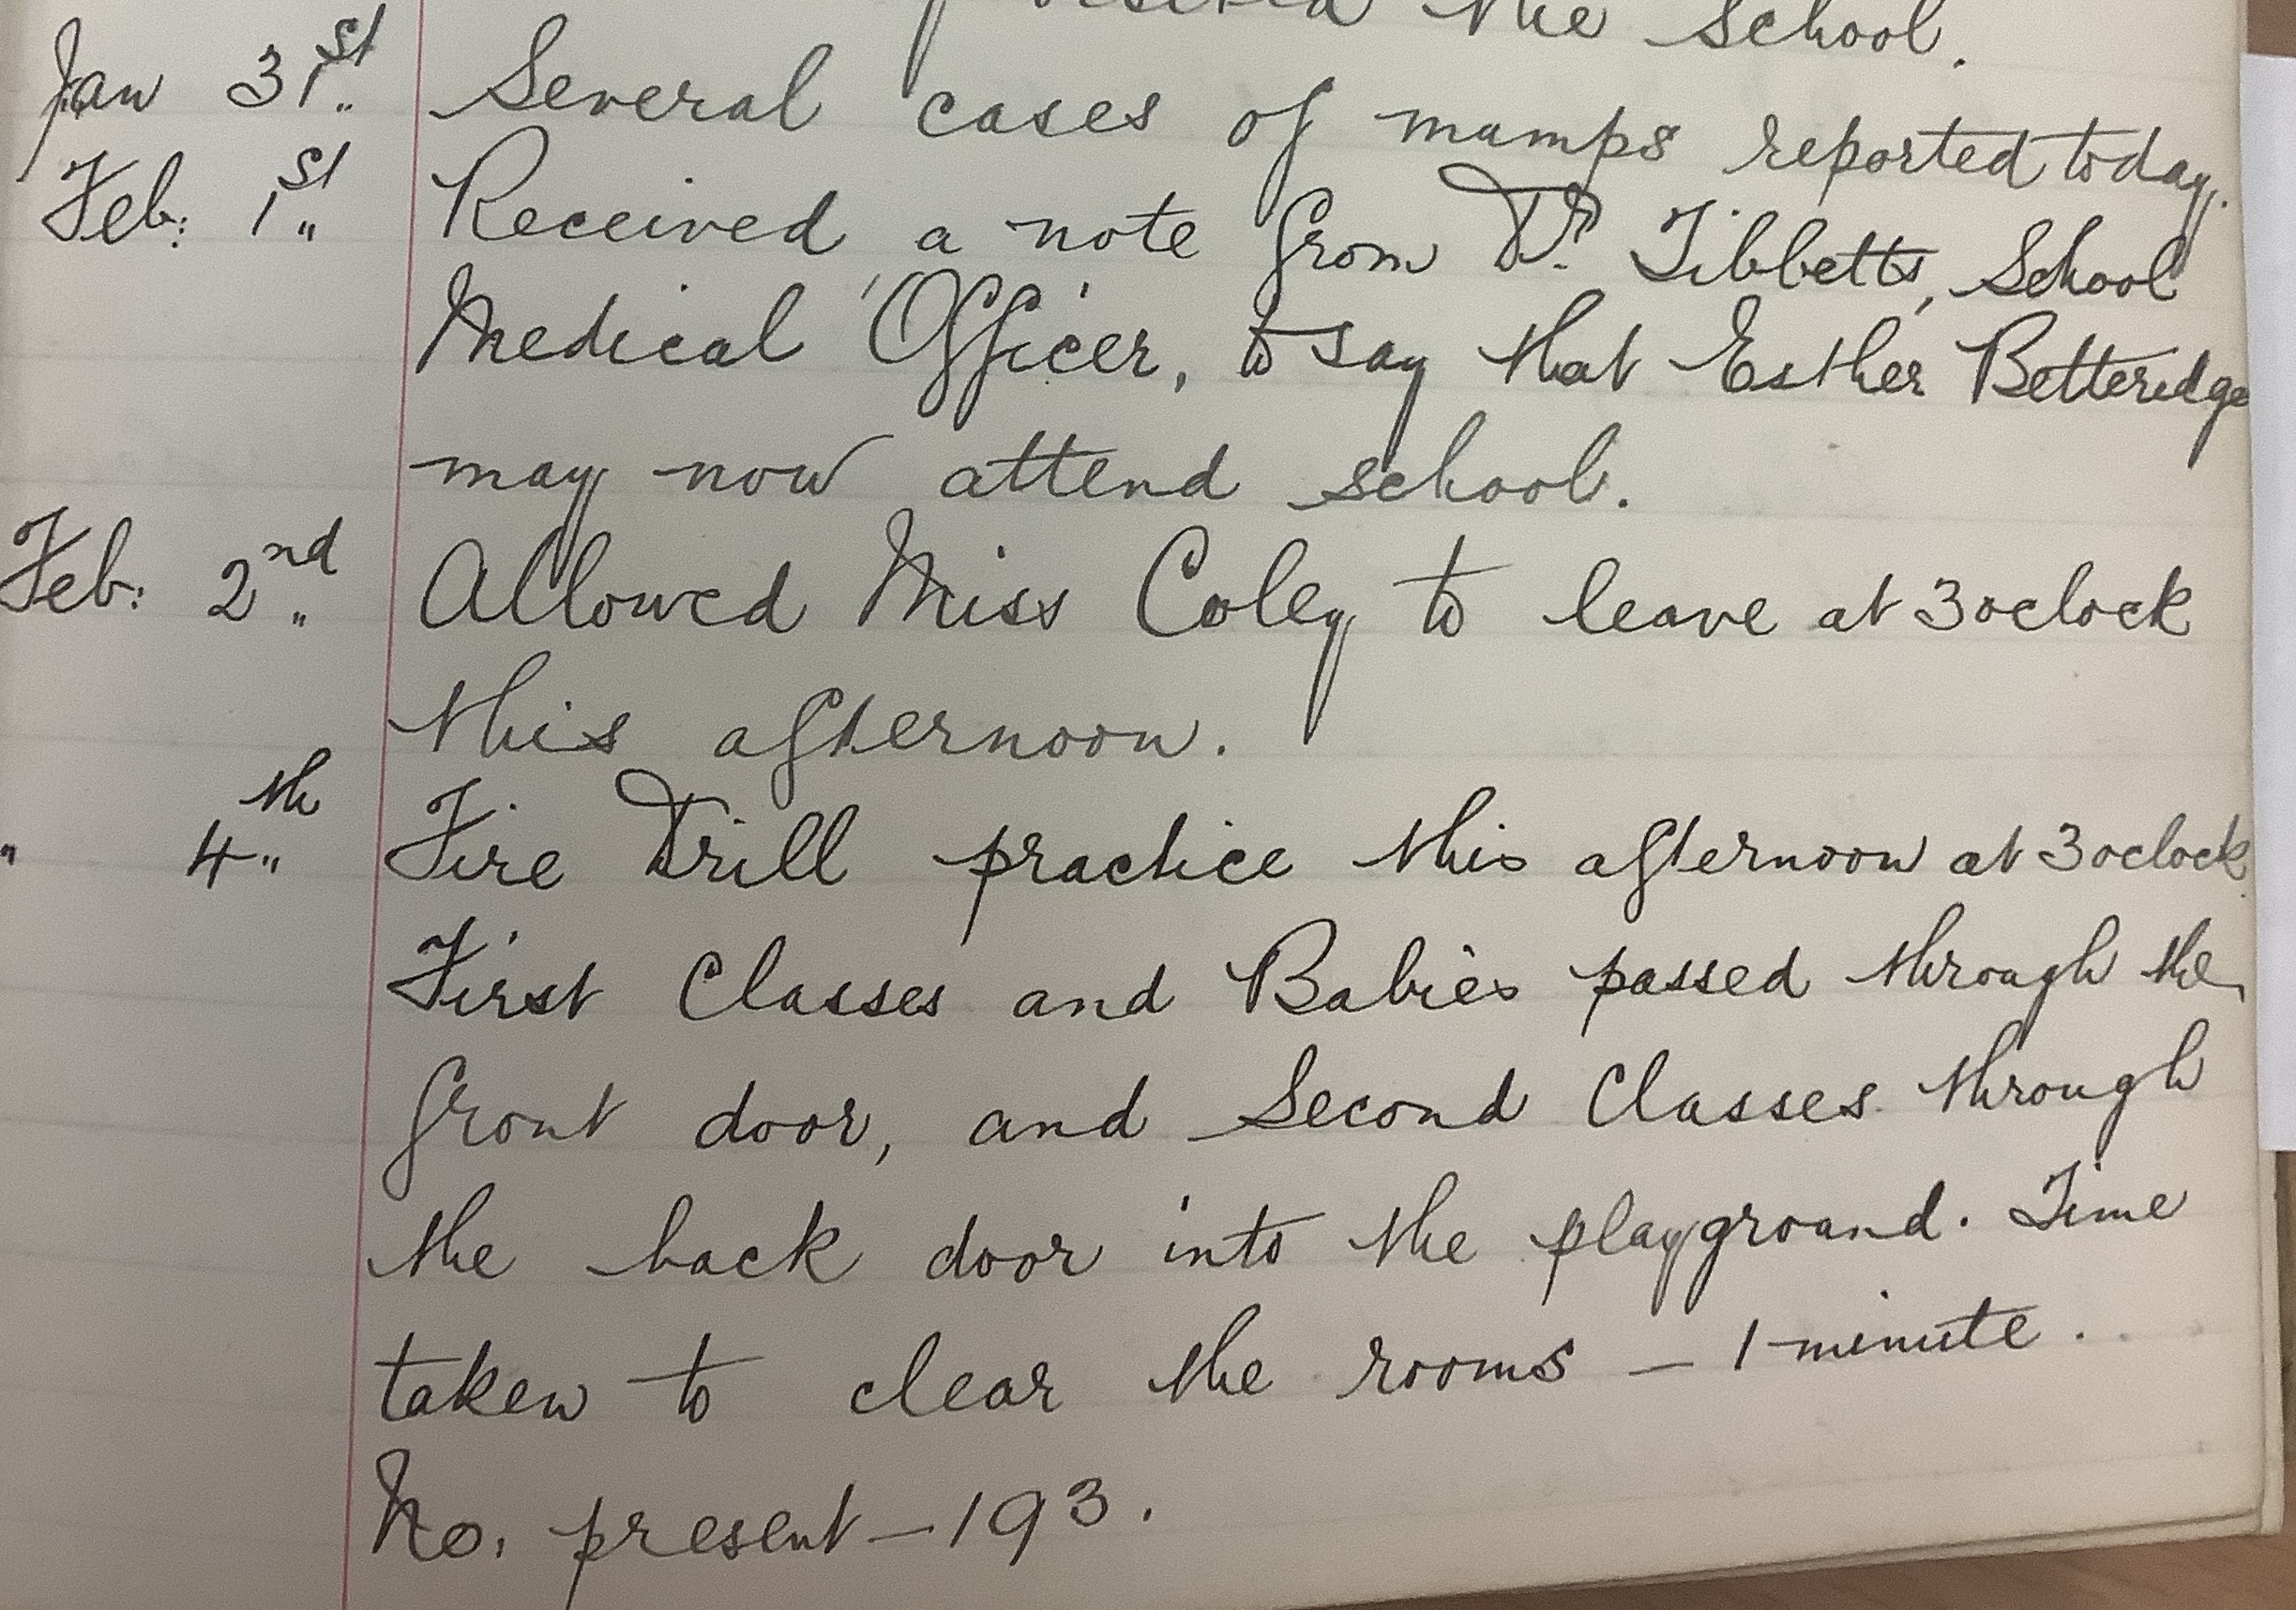 visited the School.
Jan 31st.. Several cases of mumps reported today.
Feb: 1st.. Received a note from Dr. Tibbetts, School
Medical Officer, to say that Esther Betteridge
may now attend school.
Feb: 2nd.. Allowed Miss Coley to leave at 3 oclock
this afternoon.
" 4th.. Fire Drill practice this afternoon at 3 oclock.
First Classes and Babies passed through the
front door, and Second Classes through
the back door into the playground. Time
taken to clear the rooms – 1 minute.
No. present – 193.